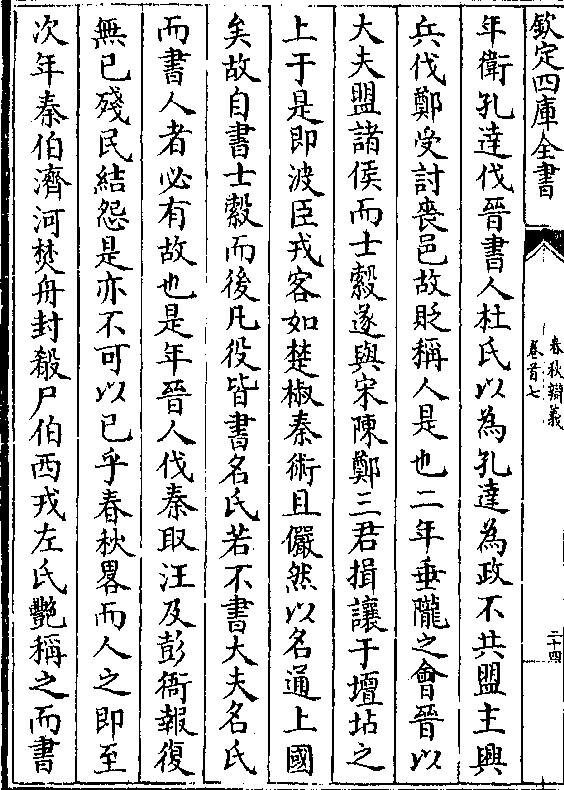 欽定四庫全書
春秋辯義
卷首七
二十四
年衛孔達伐晉書人杜氏以為孔達為政不共盟主興
兵伐鄭受討喪邑故貶稱人是也二年垂隴之會晉以
大夫盟諸侯而士縠遂與宋陳鄭三君揖讓于壇坫之
上于是即波臣戎客如楚椒秦術且儼然以名通上國
矣故自書士縠而後凡役皆書名氏若不書大夫名氏
而書人者必有故也是年晉人伐秦取汪及彭衙報復
無已殘民結怨是亦不可以已乎春秋畧而人之即至
次年秦伯濟河焚舟封殽尸伯西戎左氏艷稱之而書